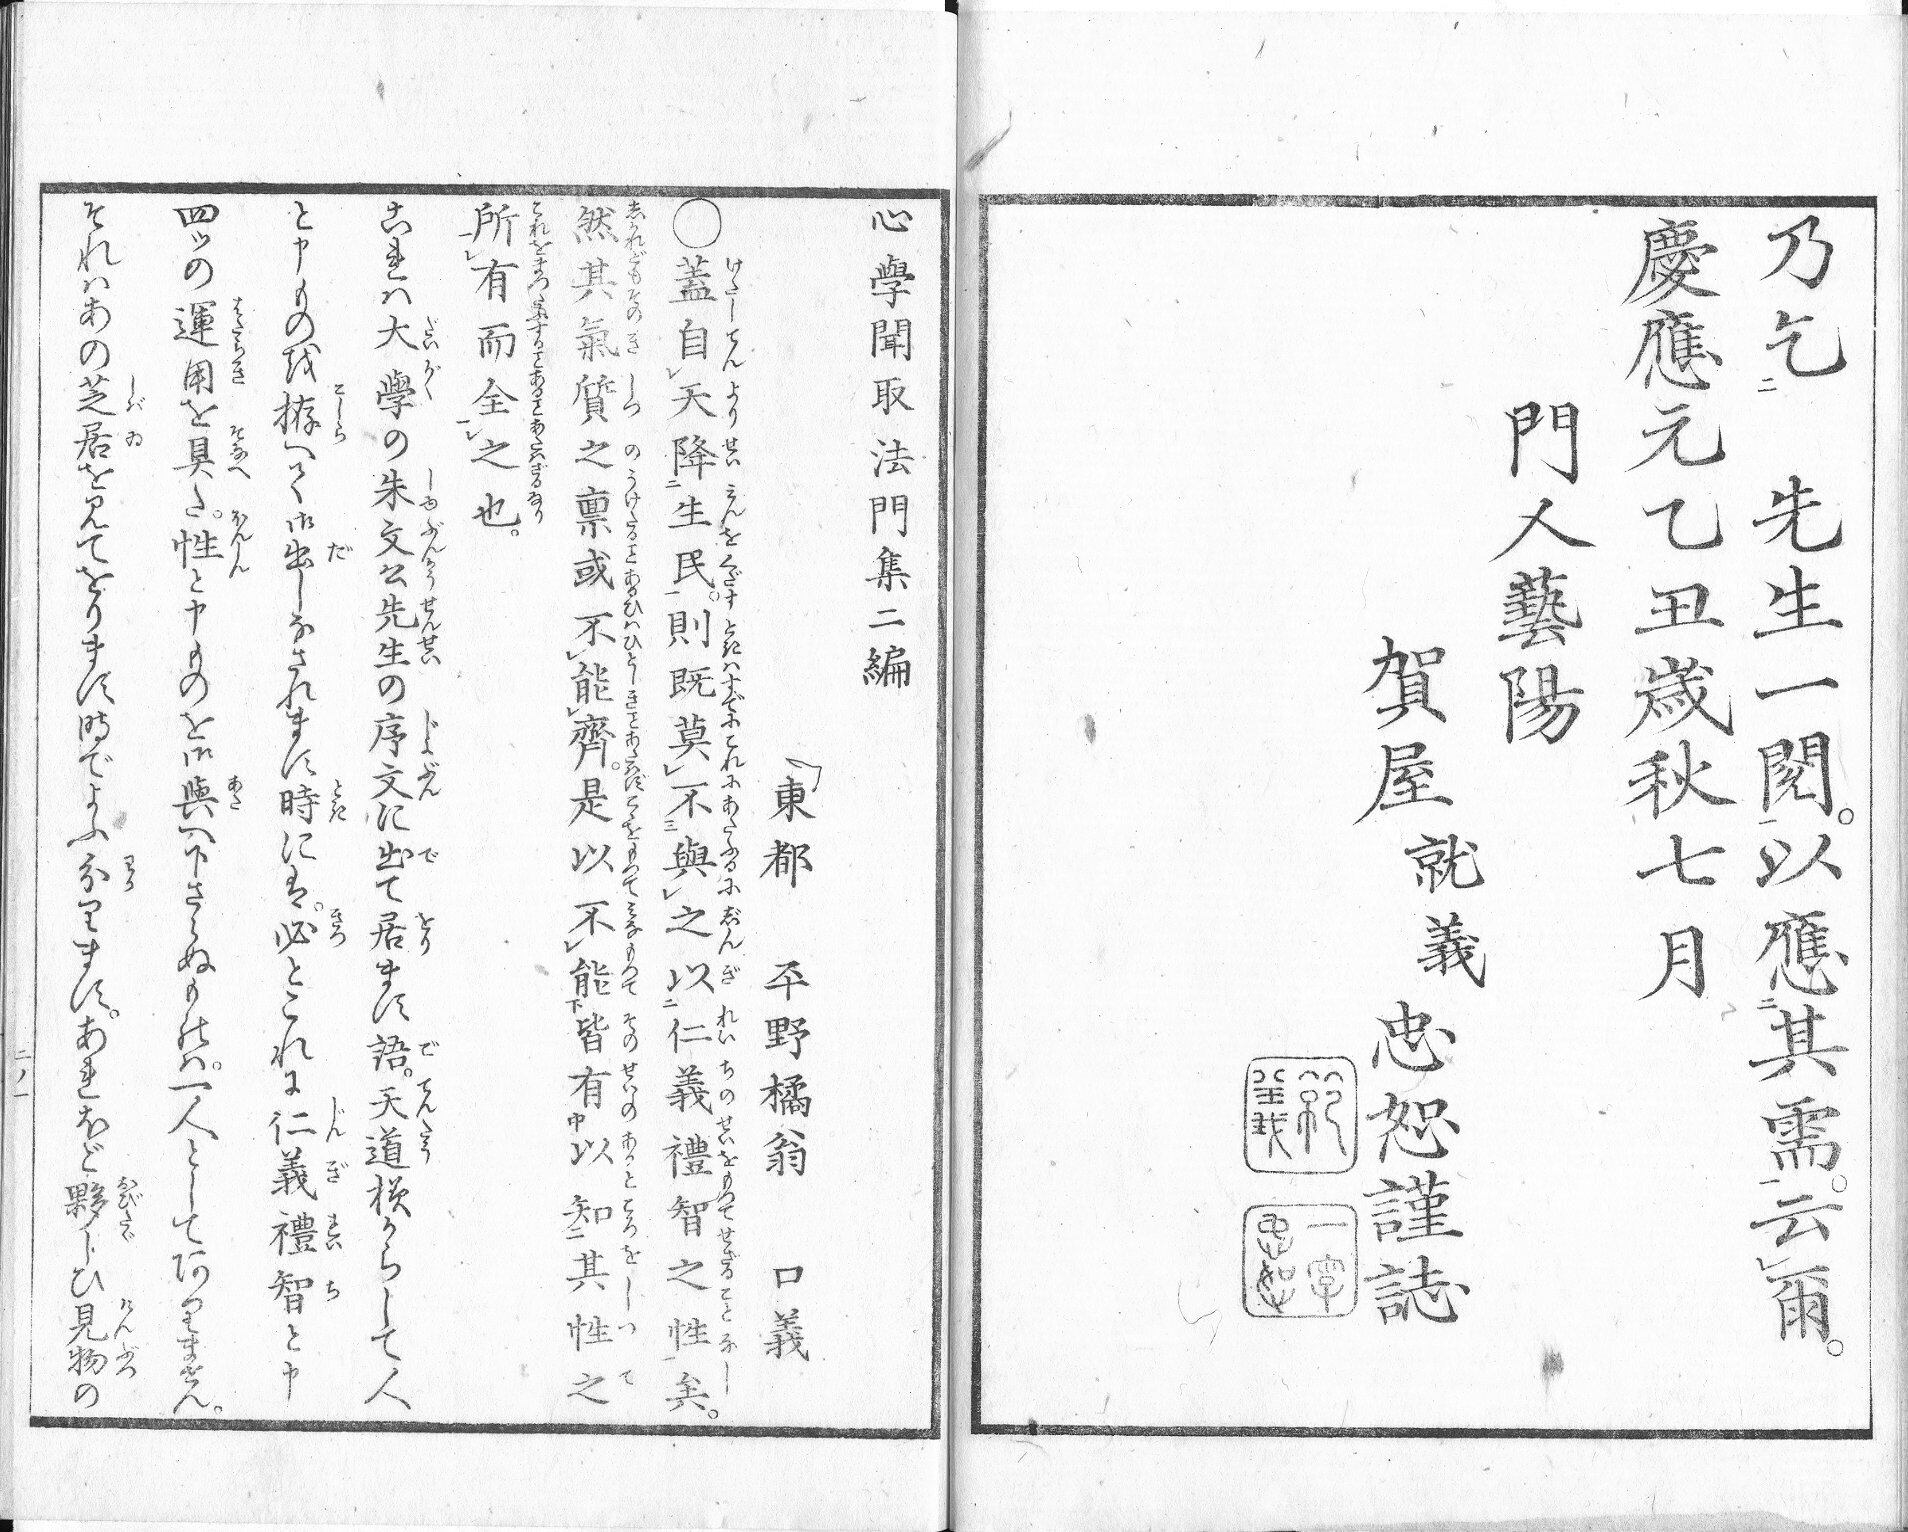 乃乞　先生一閲。以應其需。云爾。
慶應元乙丑歳秋七月
門人藝陽
賀屋就義忠恕謹誌
心學聞取法門集二編
東都　平野橘翁　口義
◯蓋自天降生民。則既莫不與之以仁義禮智之性矣。
然其氣質之禀或不能齊。是以不能皆有以知其性之
所有而全之也。
これハ大學の朱文公先生の序文に出て居ます語。天道様からして人
と申ものを拵へて御出しなされます時には。必とこれに仁義禮智と申
四ツの運用を具た。性と申ものを御與へ下さらぬものハ。一人として阿りません。
それハあの芝居を見てをります時でよふ分ります。あれほど夥しひ見物の
二ノ一